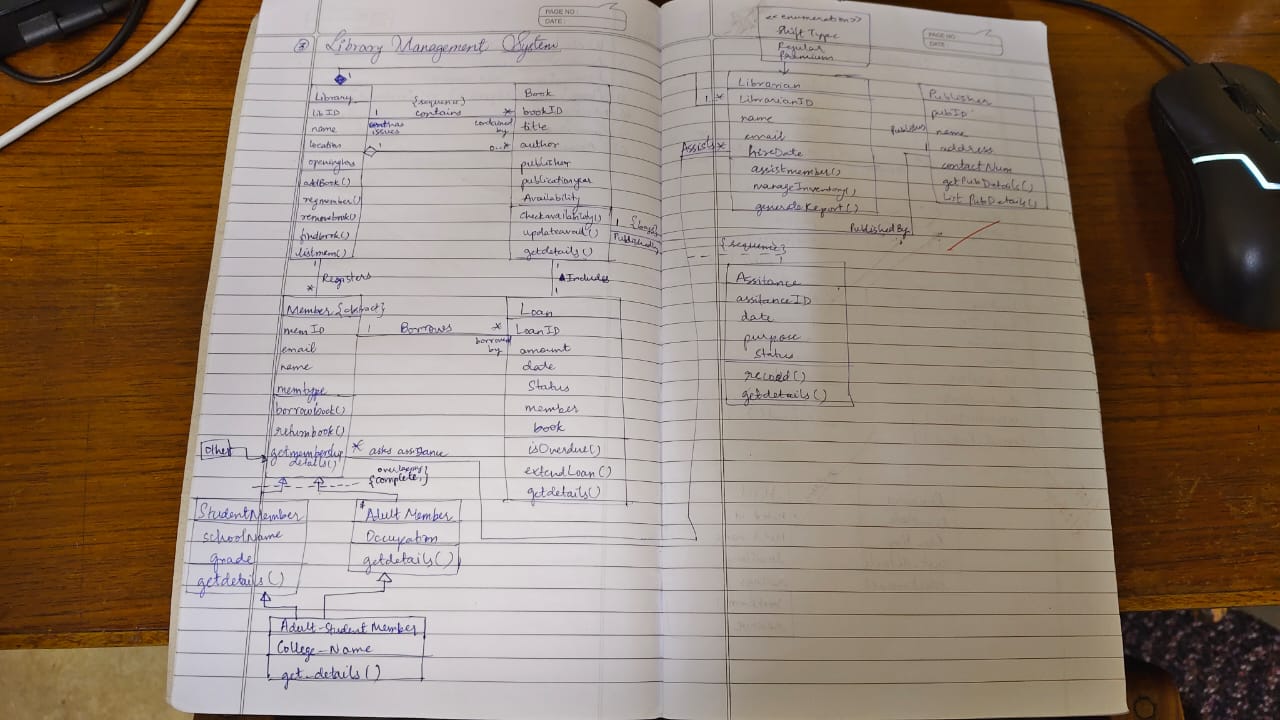 PAGE NO :
DATE :
③ Library Management System
1
Library
libID
name
location
openinghrs
addBook()
regmember()
renewbook()
findbook()
listmem()
{sequence}
1 contains *
issues
contained by
0...*
Book
bookID
title
author
publisher
publicationyear
Availability
checkavailability()
updateavail()
getdetails()
1
Published by
1
* Registers
1
▲Includes
1
Member {abstract}
memID
email
name
memtype
borrowbook()
returnbook()
getmembership
details()
1 Borrows *
borrowed by
Loan
LoanID
amount
date
Status
member
book
isOverdue()
extendLoan()
getdetails()
Other
* asks assistance
overlapping
{complete,}
StudentMember
schoolName
grade
getdetails()
Adult Member
Occupation
getdetails()
Adult-Student Member
College_Name
get_details()
PAGE NO
DATE
<<enumeration>>
Shift Type
Regular
Premium
1..*
Assists *
Librarian
LibrarianID
name
email
hireDate
assistmember()
manageInventory()
generateReport()
Publisher
pubID
name
address
contactNum
getPubDetails()
list PubDetails()
1
Published By
{sequence}
Assitance
assitanceID
date
purpose
Status
record()
getdetails()